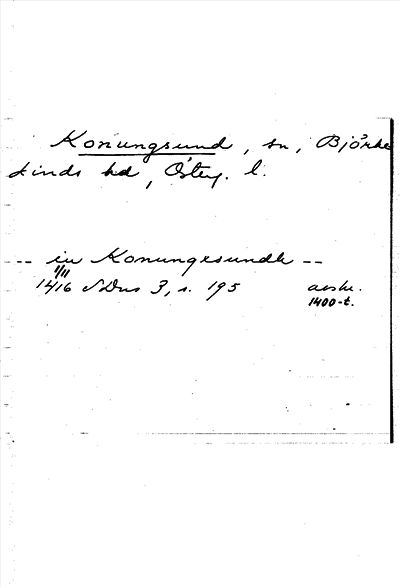 Konungsund, sn, Björke
kinds hd, Östey. l.
-- in Konungesundh --
1/11
1416 SDns 3, s. 195 avskr.
1400-t.